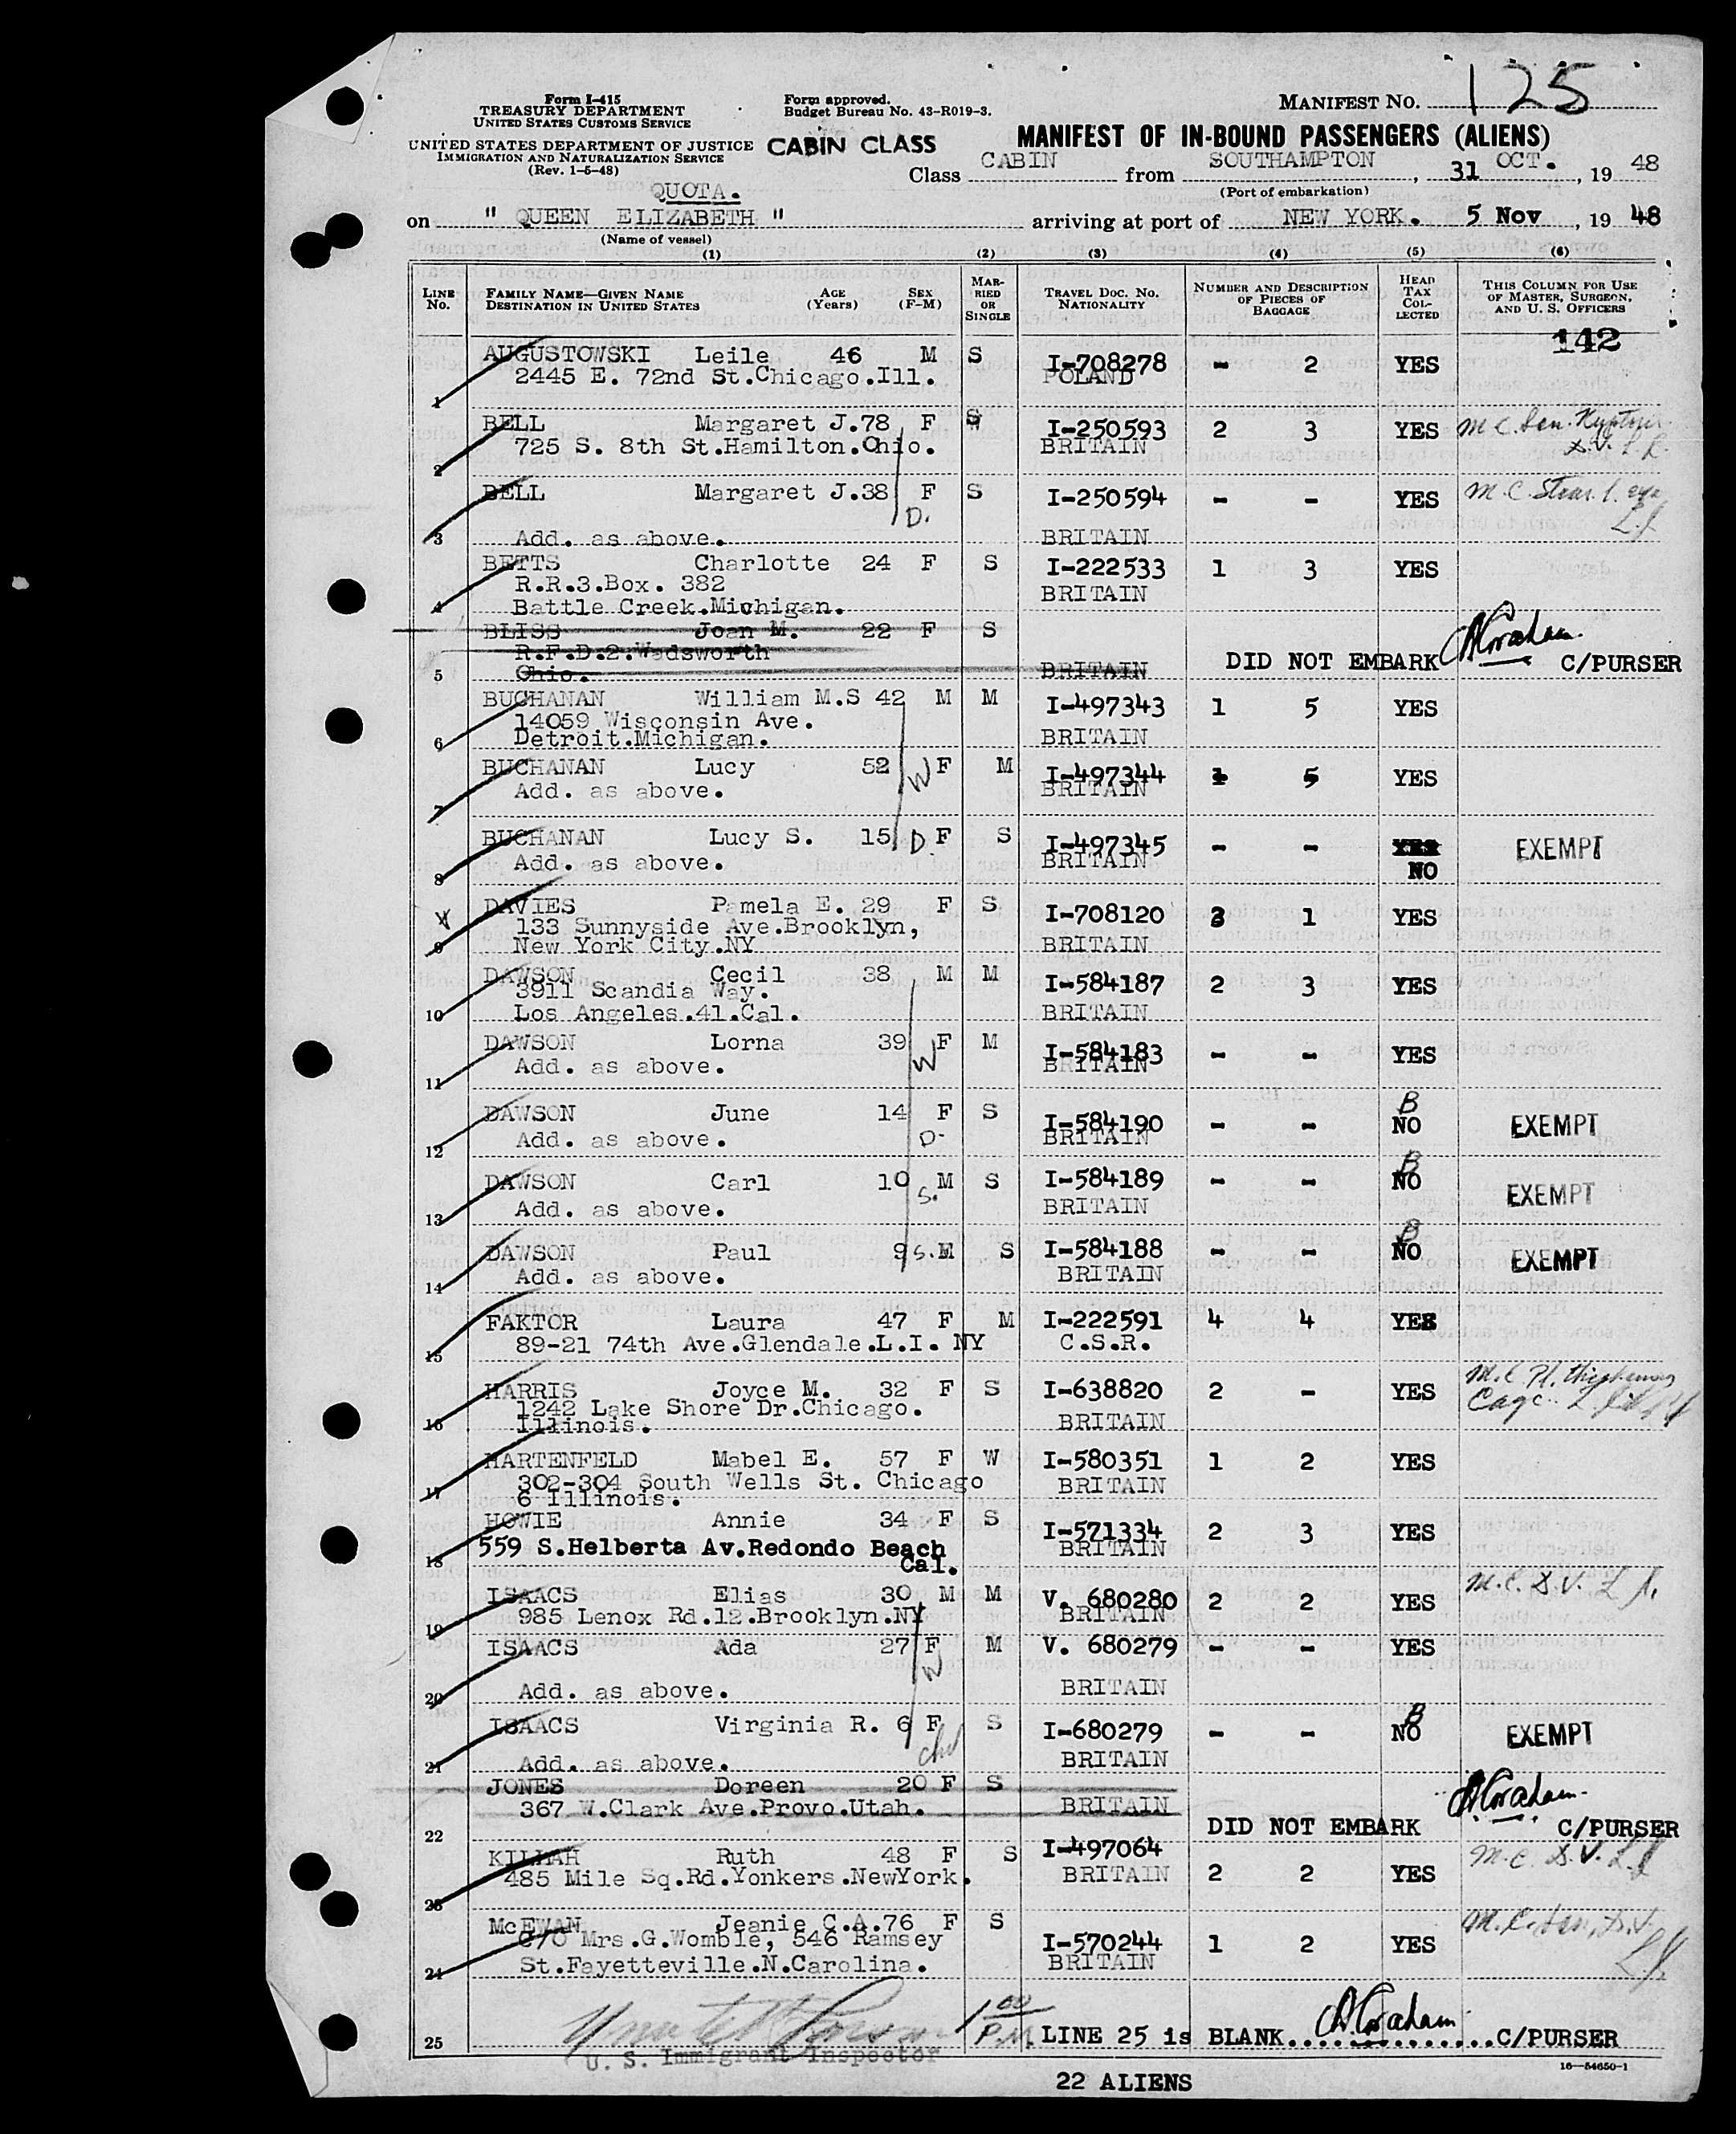 Form I-415
TREASURY DEPARTMENT
UNITED STATES CUSTOMS SERVICE
UNITED STATES DEPARTMENT OF JUSTICE
IMMIGRATION AND NATURALIZATION SERVICE
(Rev. 1-5-48)
Form approved.
Budget Bureau No. 43-R019-3.
CABIN CLASS
MANIFEST NO. 125
MANIFEST OF IN-BOUND PASSENGERS (ALIENS)
Class CABIN from SOUTHAMPTON, 31 OCT., 19 48
(Port of embarkation)
QUOTA.
on " QUEEN ELIZABETH " arriving at port of NEW YORK. 5 Nov, 19 48
(Name of vessel)
(1) (2) (3) (4) (5) (6)
LINE No. FAMILY NAME—GIVEN NAME DESTINATION IN UNITED STATES AGE (Years) SEX (F-M) MARRIED OR SINGLE TRAVEL DOC. NO. NATIONALITY NUMBER AND DESCRIPTION OF PIECES OF BAGGAGE HEAD TAX COLLECTED THIS COLUMN FOR USE OF MASTER, SURGEON, AND U. S. OFFICERS
142
AUGUSTOWSKI Leile 46 M S I-708278 - 2 YES
2445 E. 72nd St.Chicago.Ill. POLAND
1
BELL Margaret J.78 F S I-250593 2 3 YES M.C. Sen.
725 S. 8th St.Hamilton.Ohio. BRITAIN
2
BELL Margaret J.38 F S I-250594 - - YES M.C.
D.
3 Add. as above. BRITAIN
BETTS Charlotte 24 F S I-222533 1 3 YES
R.R.3.Box. 382 BRITAIN
4 Battle Creek.Michigan.
BLISS Joan M. 22 F S
R.F.D.2.Wadsworth DID NOT EMBARK C/PURSER
5 Ohio. BRITAIN
BUCHANAN William M.S 42 M M I-497343 1 5 YES
14059 Wisconsin Ave.
6 Detroit.Michigan. BRITAIN
BUCHANAN Lucy 52 W F M I-497344 1 5 YES
Add. as above. BRITAIN
7
BUCHANAN Lucy S. 15 D F S I-497345 - - YES EXEMPT
Add. as above. BRITAIN NO
8
DAVIES Pamela E. 29 F S I-708120 3 1 YES
133 Sunnyside Ave.Brooklyn,
9 New York City.NY BRITAIN
DAWSON Cecil 38 M M I-584187 2 3 YES
3911 Scandia Way.
10 Los Angeles.41.Cal. BRITAIN
DAWSON Lorna 39 W F M I-584183 - - YES
Add. as above. BRITAIN
11
B
DAWSON June 14 F S I-584190 - - NO EXEMPT
Add. as above. D. BRITAIN
12
B
DAWSON Carl 10 S. M S I-584189 - - NO EXEMPT
Add. as above. BRITAIN
13
B
DAWSON Paul 9 S. M S I-584188 - - NO EXEMPT
Add. as above. BRITAIN
14
FAKTOR Laura 47 F M I-222591 4 4 YES
89-21 74th Ave.Glendale.L.I. NY C.S.R.
15
HARRIS Joyce M. 32 F S I-638820 2 - YES
1242 Lake Shore Dr.Chicago.
16 Illinois. BRITAIN
HARTENFELD Mabel E. 57 F W I-580351 1 2 YES
302-304 South Wells St. Chicago BRITAIN
17 6 Illinois.
HOWIE Annie 34 F S I-571334 2 3 YES
559 S.Helberta Av.Redondo Beach BRITAIN
18 Cal.
ISAACS Elias 30 M M V. 680280 2 2 YES M.C. D.V.
985 Lenox Rd.12.Brooklyn.NY BRITAIN
19
ISAACS Ada 27 F M V. 680279 - - YES
W
20 Add. as above. BRITAIN
B
ISAACS Virginia R. 6 F S I-680279 - - NO EXEMPT
chd
21 Add. as above. BRITAIN
JONES Doreen 20 F S
367 W.Clark Ave.Provo.Utah. BRITAIN
22 DID NOT EMBARK C/PURSER
KILLAH Ruth 48 F S I-497064 M.C. D.V.
485 Mile Sq.Rd.Yonkers.NewYork. BRITAIN 2 2 YES
23
McEWAN Jeanie C.A.76 F S M.C. Sen, D.V.
C/O Mrs.G.Womble, 546 Ramsey I-570244 1 2 YES
24 St.Fayetteville.N.Carolina. BRITAIN
1 00 P.M.
25 LINE 25 is BLANK...............C/PURSER
U. S. Immigrant Inspector
16—54650-1
22 ALIENS